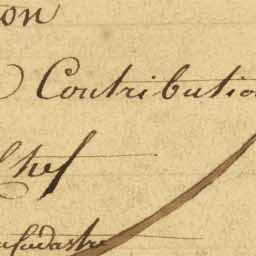 on
Contributio
chef
cadastre